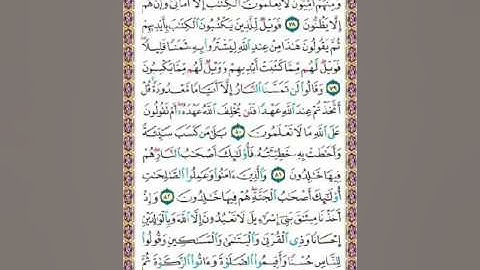 وَمِنْهُمْ أُمِّيُّونَ لَا يَعْلَمُونَ ٱلْكِتَٰبَ إِلَّآ أَمَانِىَّ وَإِنْ هُمْ
إِلَّا يَظُنُّونَ ٧٨ فَوَيْلٌ لِّلَّذِينَ يَكْتُبُونَ ٱلْكِتَٰبَ بِأَيْدِيهِمْ
ثُمَّ يَقُولُونَ هَٰذَا مِنْ عِندِ ٱللَّهِ لِيَشْتَرُوا۟ بِهِۦ ثَمَنًا قَلِيلًا
فَوَيْلٌ لَّهُم مِّمَّا كَتَبَتْ أَيْدِيهِمْ وَوَيْلٌ لَّهُم مِّمَّا يَكْسِبُونَ
٧٩ وَقَالُوا۟ لَن تَمَسَّنَا ٱلنَّارُ إِلَّآ أَيَّامًا مَّعْدُودَةً قُلْ
أَتَّخَذْتُمْ عِندَ ٱللَّهِ عَهْدًا فَلَن يُخْلِفَ ٱللَّهُ عَهْدَهُۥٓ أَمْ تَقُولُونَ
عَلَى ٱللَّهِ مَا لَا تَعْلَمُونَ ٨٠ بَلَىٰ مَن كَسَبَ سَيِّئَةً
وَأَحَٰطَتْ بِهِۦ خَطِيٓـَٔتُهُۥ فَأُو۟لَٰٓئِكَ أَصْحَٰبُ ٱلنَّارِ هُمْ
فِيهَا خَٰلِدُونَ ٨١ وَٱلَّذِينَ ءَامَنُوا۟ وَعَمِلُوا۟ ٱلصَّٰلِحَٰتِ
أُو۟لَٰٓئِكَ أَصْحَٰبُ ٱلْجَنَّةِ هُمْ فِيهَا خَٰلِدُونَ ٨٢ وَإِذْ
أَخَذْنَا مِيثَٰقَ بَنِىٓ إِسْرَٰٓءِيلَ لَا تَعْبُدُونَ إِلَّا ٱللَّهَ وَبِٱلْوَٰلِدَيْنِ
إِحْسَانًا وَذِى ٱلْقُرْبَىٰ وَٱلْيَتَٰمَىٰ وَٱلْمَسَٰكِينِ وَقُولُوا۟
لِلنَّاسِ حُسْنًا وَأَقِيمُوا۟ ٱلصَّلَوٰةَ وَءَاتُوا۟ ٱلزَّكَوٰةَ ثُمَّ